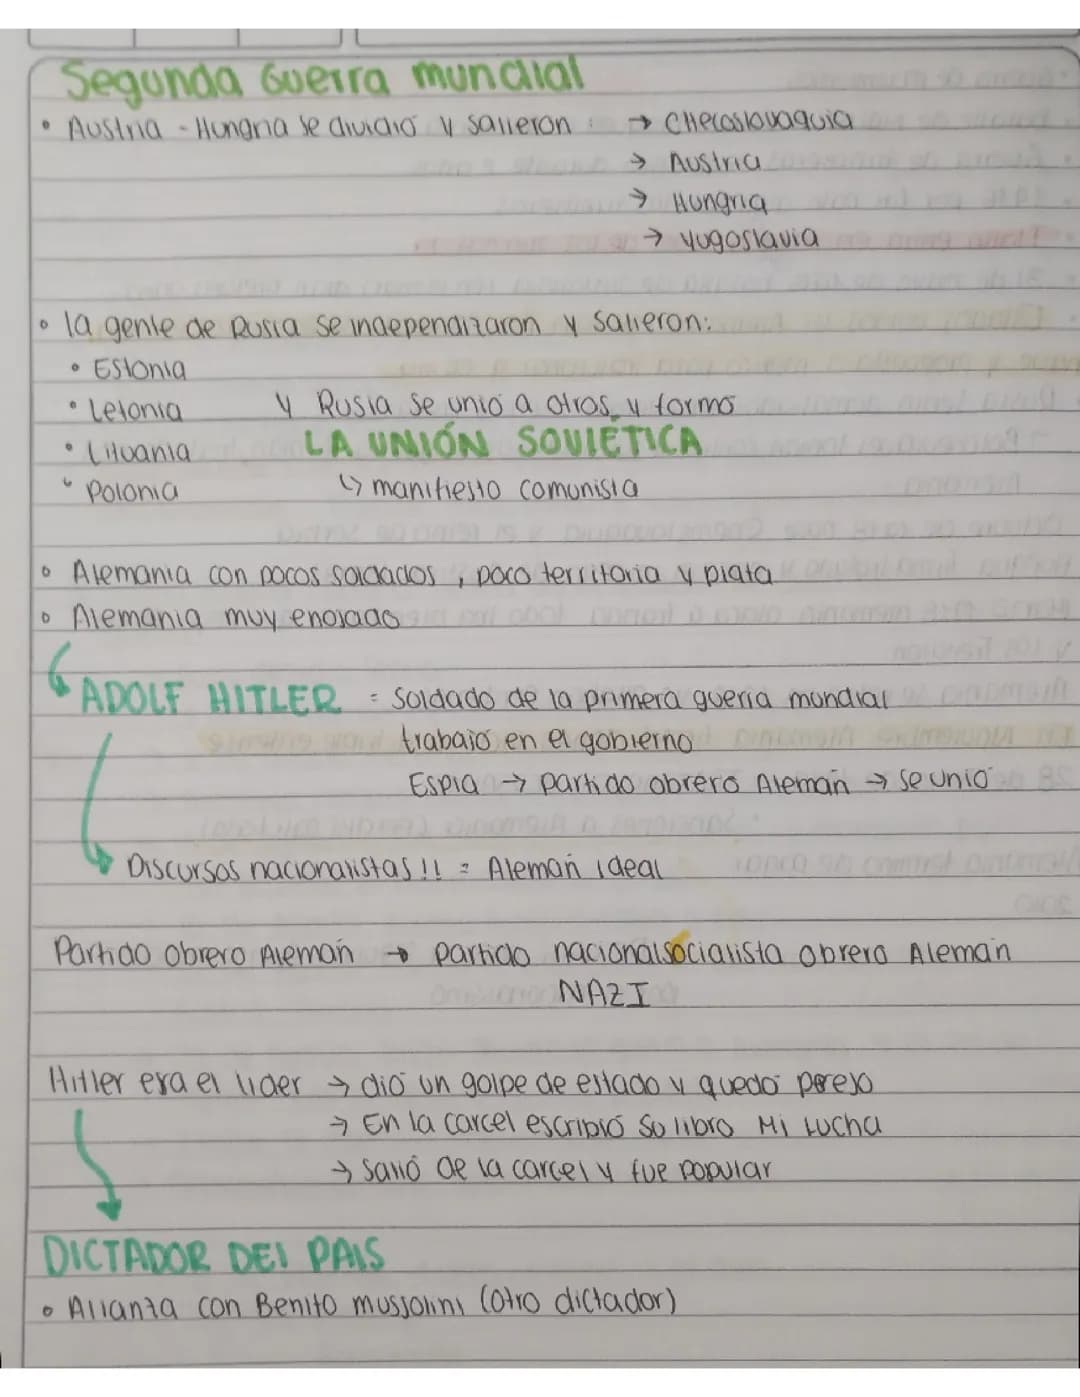 Segunda Guerra mundial
• Austria - Hungria se dividió y salieron : → Checoslovaquia
→ Austria
→ Hungria
→ Yugoslavia
• la gente de Rusia se independizaron y salieron:
• Estonia
• Letonia y Rusia se unió a otros y formo
• Lituania LA UNIÓN SOVIETICA
• Polonia ↳ manifiesto comunista
• Alemania con pocos soldados , poco territorio y plata
• Alemania muy enojado
ADOLF HITLER = Soldado de la primera guerra mundial
trabajó en el gobierno
Espia → partido obrero Alemán → se unió
Discursos nacionalistas !! = Alemán ideal
Partido obrero Alemán → partido nacionalsocialista obrero Alemán
NAZI
Hitler era el lider → dió un golpe de estado y quedó pereso
→ En la carcel escribió su libro Mi Lucha
→ Salió de la carcel y fue popular
DICTADOR DEl PAIS
• Alianza con Benito mussolini (otro dictador)